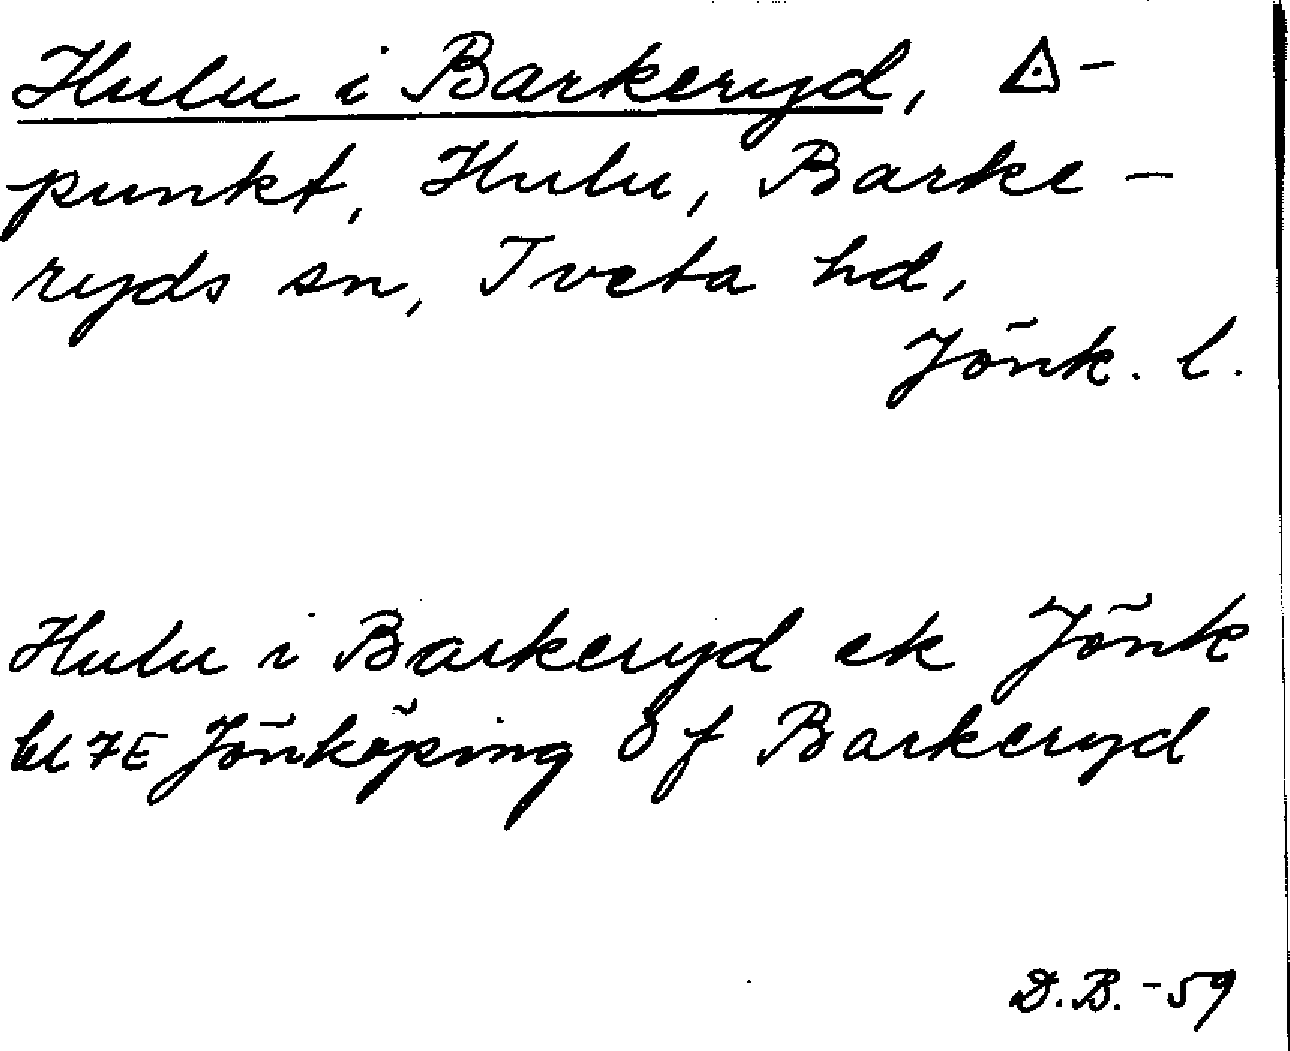 Hulu i Barkeryd, △-
punkt, Hulu, Barke-
ryds sn, Tveta hd,
Jönk. l.
Hulu i Barkeryd ek Jönk
bl 7E Jönköping Öf Barkeryd
D.B. -59